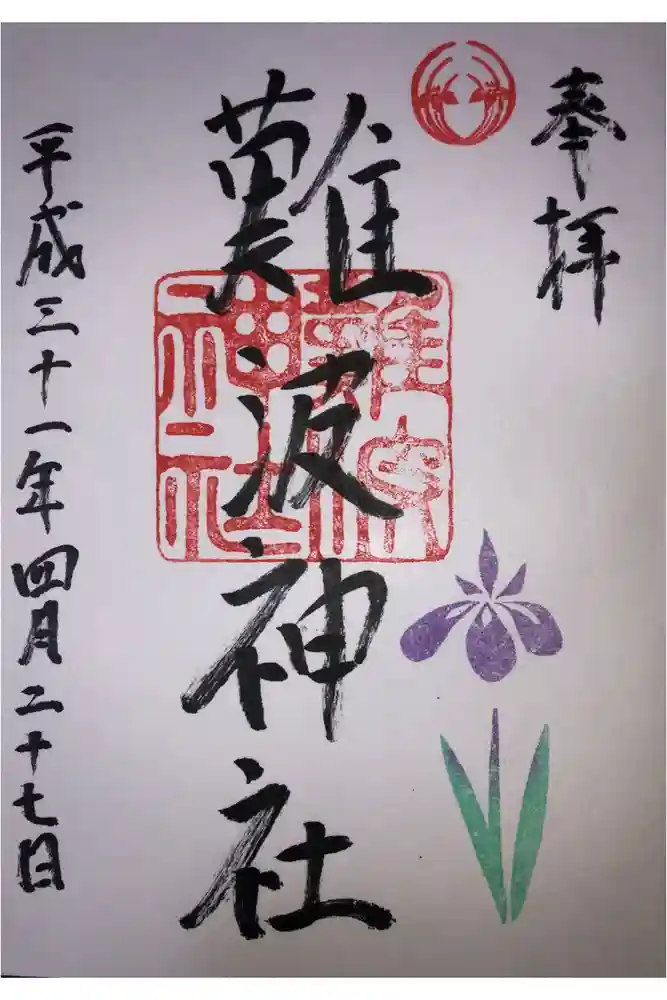 奉拝
難波神社
難波
神社
平成三十一年四月二十七日